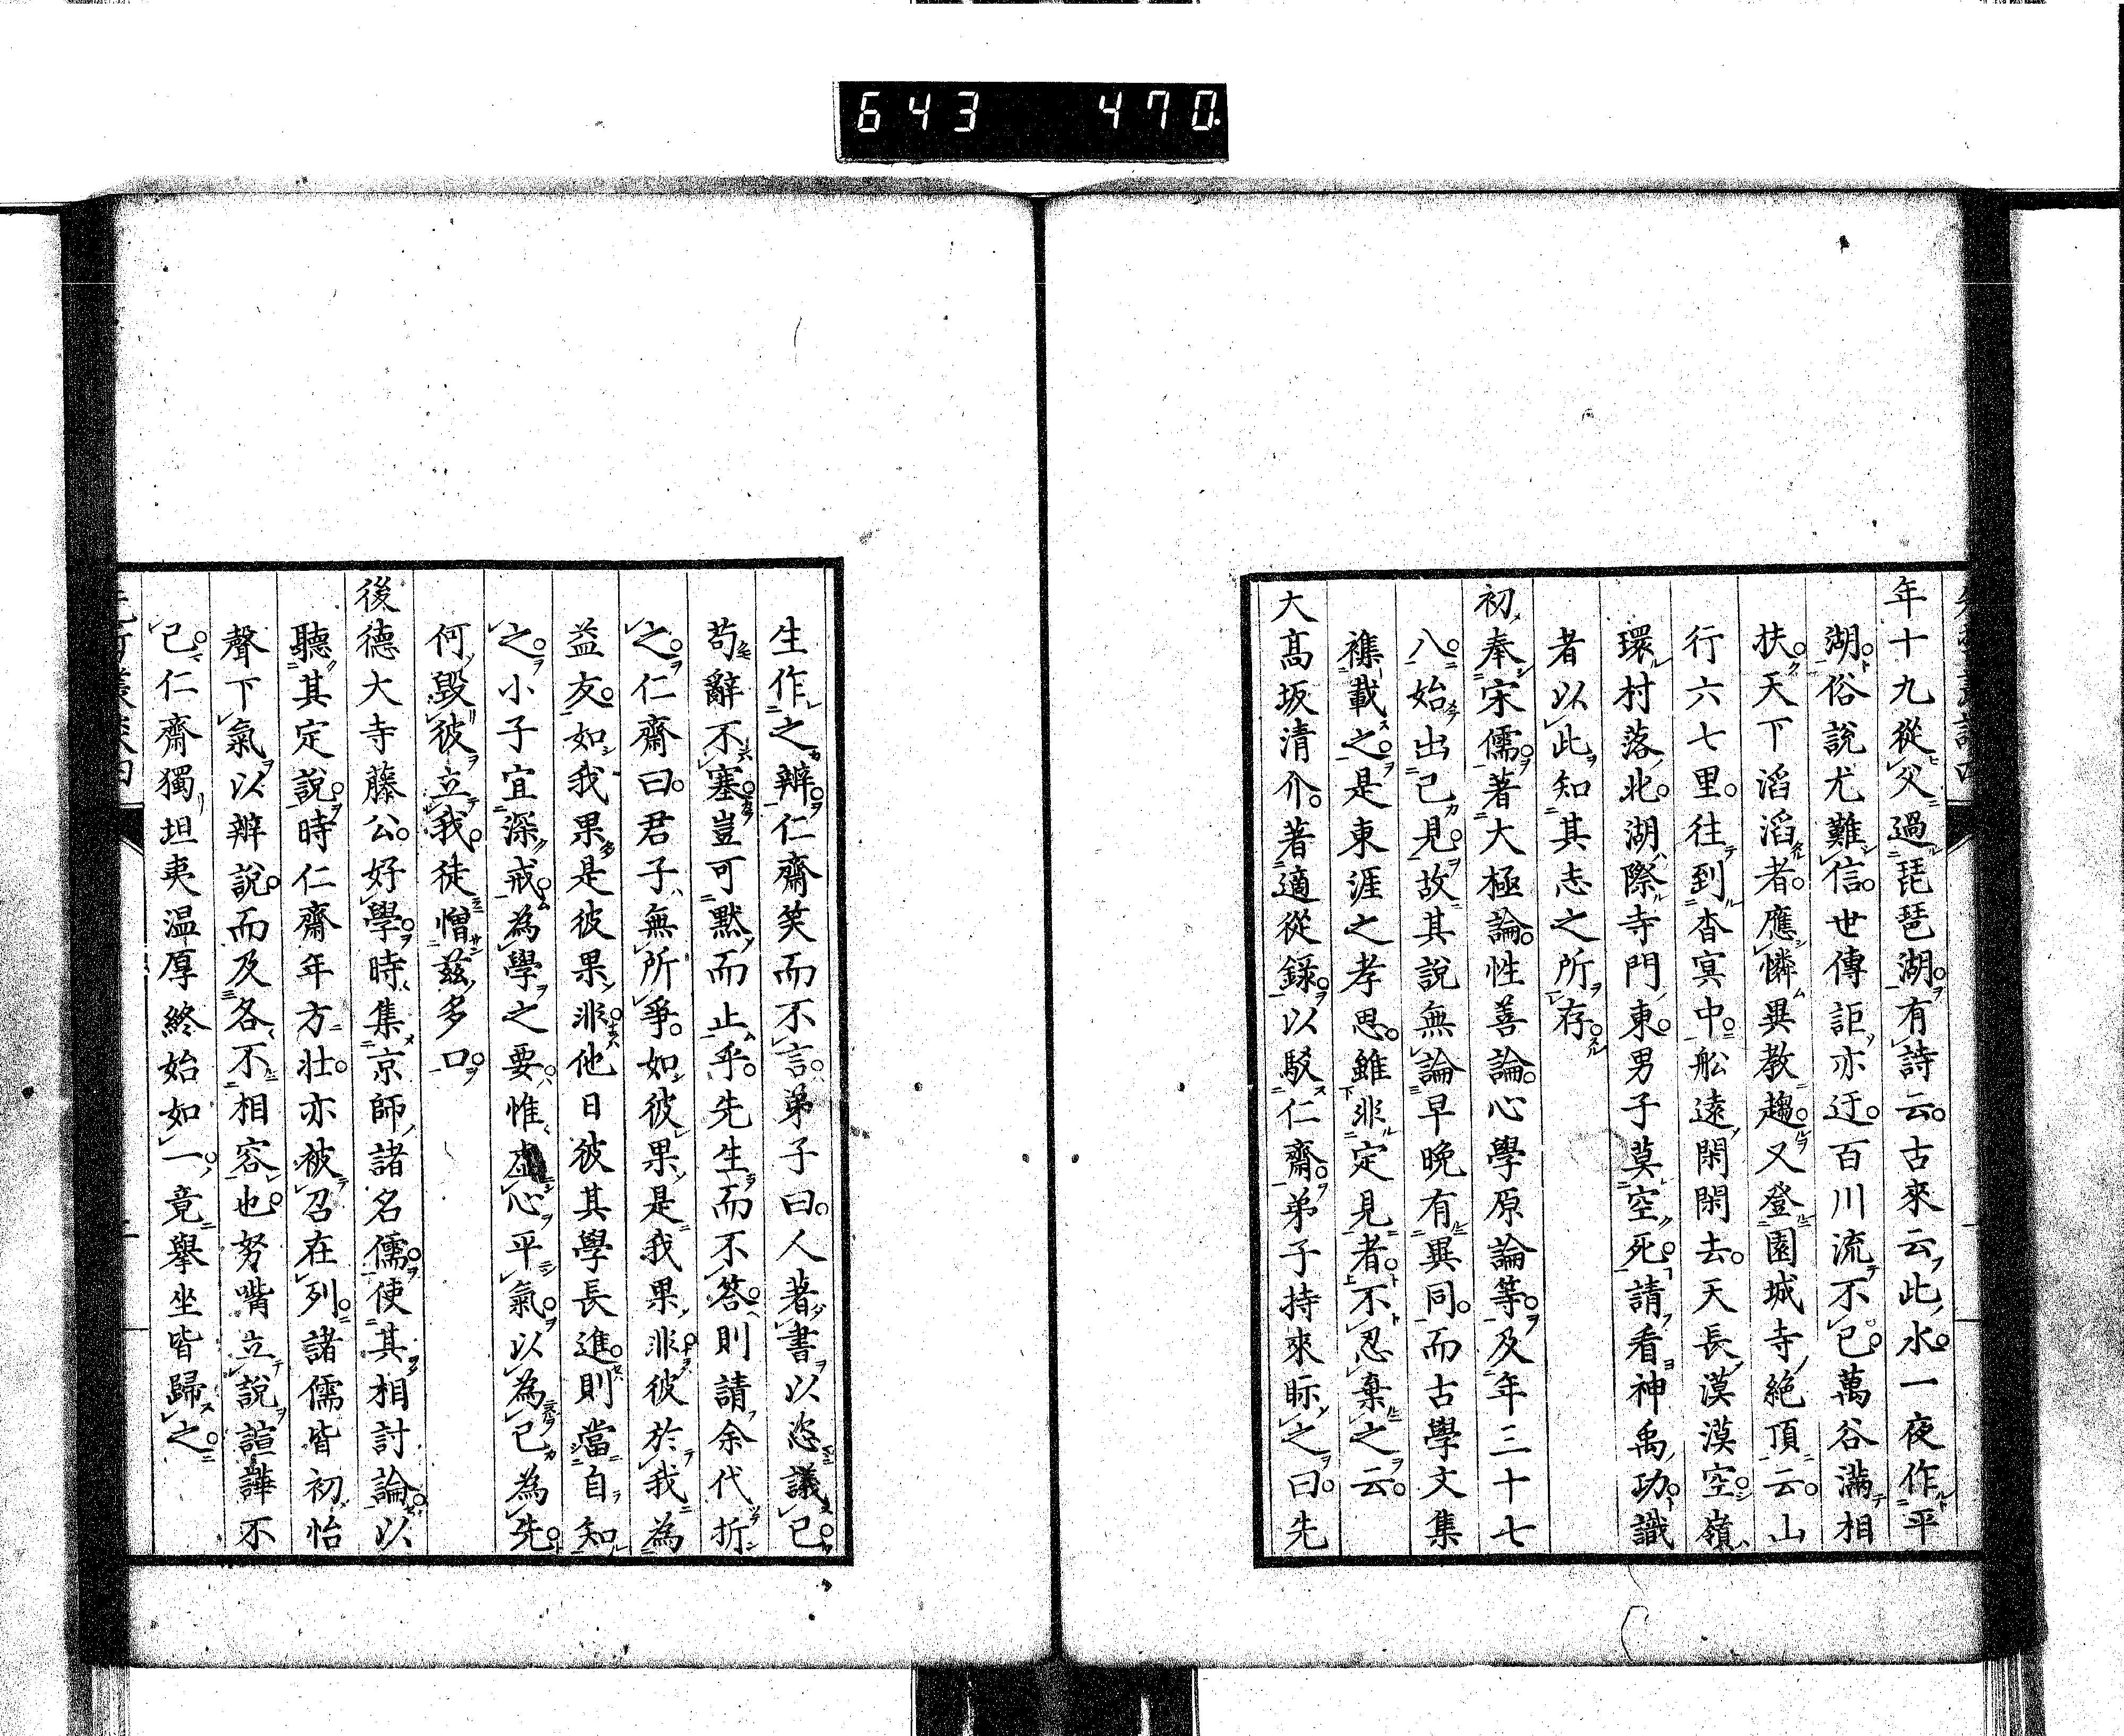 643 470.
年十九從父過琵琶湖有詩云古來云此水一夜作平
湖俗說尤難信世傳詎亦迂百川流不已萬谷滿相
扶天下滔滔者應憐異教趨又登園城寺絶頂云山
行六七里往到杳冥中船遠閑閑去天長漠漠空嶺
環村落北湖際寺門東男子莫空死請看神禹功識
者以此知其志之所存
初奉宋儒著大極論性善論心學原論等及年三十七
八始出己見故其說無論早晚有異同而古學文集
襍載之是東涯之孝思雖非定見者不忍棄之云
大高坂清介著適從錄以駁仁齋弟子持來眎之曰先
生作之辨仁齋笑而不言弟子曰人著書以恣議己
苟辭不塞豈可默而止乎先生而不答則請余代折
之仁齋曰君子無所爭如彼果是我果非彼於我為
益友如我果是彼果非他日彼其學長進則當自知
之小子宜深戒為學之要惟虛心平氣以為己為先
何毀彼立我徒憎茲多口
後德大寺藤公好學時集京師諸名儒使其相討論以
聽其定說時仁齋年方壯亦被召在列諸儒皆初怡
聲下氣以辨說而及各不相容也努嘴立說諠譁不
已仁齋獨坦夷温厚終始如一竟擧坐皆歸之